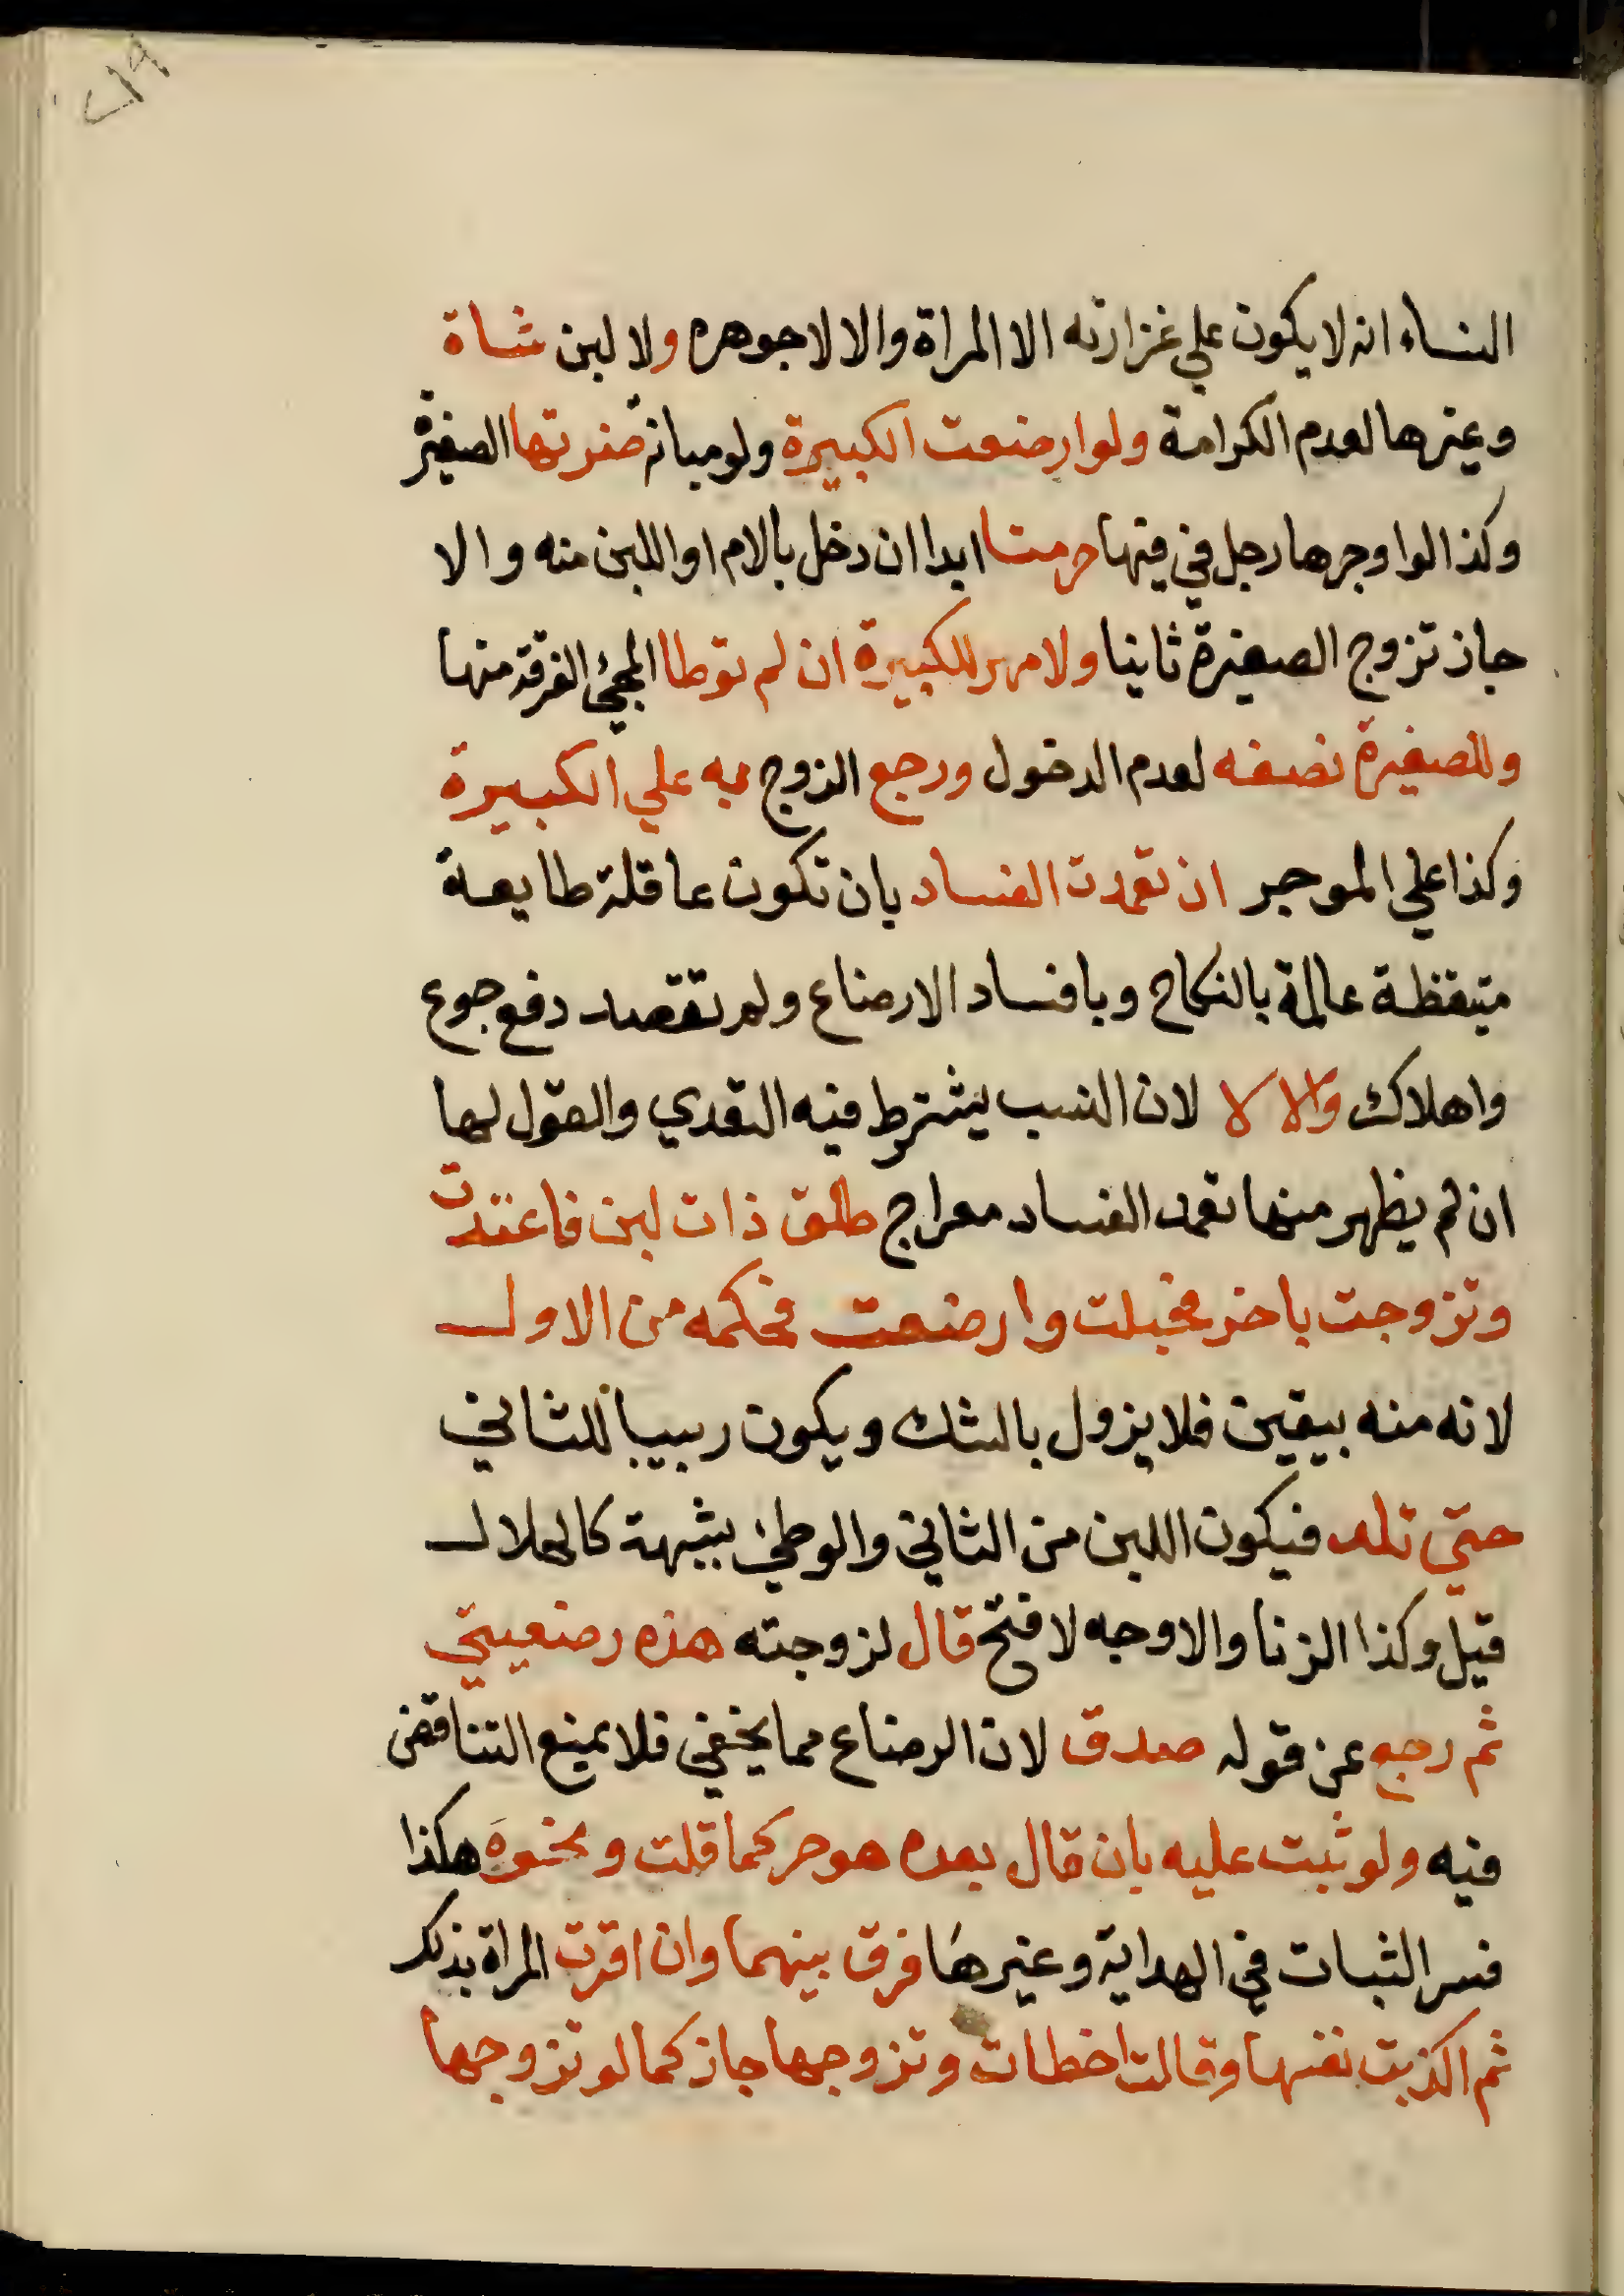 ٢١٩
النساء انه لا يكون علي غزارته الا المراة والا لا جوهره ولا لبن شاة
وغيرها لعدم الكرامة ولو ارضعت الكبيرة ولو مبانة ضرتها الصغيرة
وكذا لو اوجرها رجل في فيها حرمتا ابدا ان دخل بالام او اللبن منه والا
جاز تزوج الصغيرة ثانيا ولا مهر للكبيرة ان لم توطا لمجئ الفرقة منها
وللصغيرة نصفه لعدم الدخول ورجع الزوج به علي الكبيرة
وكذا علي الموجر ان تعمدت الفساد بان تكون عاقلة طايعة
متيقظة عالمة بالنكاح وبافساد الارضاع ولم تقصد دفع جوع
واهلاك والا لا لان النسب يشترط فيه التعدي والقول لها
ان لم يظهر منها تعمد الفساد معراج طلق ذات لبن فاعتدت
وتزوجت باخر فحبلت وارضعت فحكمه من الاول
لانه منه بيقين فلا يزول بالشك ويكون ربيبا للثاني
حتي تلد فيكون اللبن من الثاني والوطئ بشبهة كالحلال
قيل وكذا الزنا والاوجه لا فتح قال لزوجته هذه رضعيتي
ثم رجع عن قوله صدق لان الرضاع مما يخفي فلا يمنع التناقض
فيه ولو ثبت عليه بان قال بعده هو حر كما قلت ونحوه هكذا
فسر الثبات في الهداية وغيرها فرق بينهما وان اقرت المراة بذلك
ثم اكذبت نفسها وقالت اخطات وتزوجها جاز كما لو تزوجها